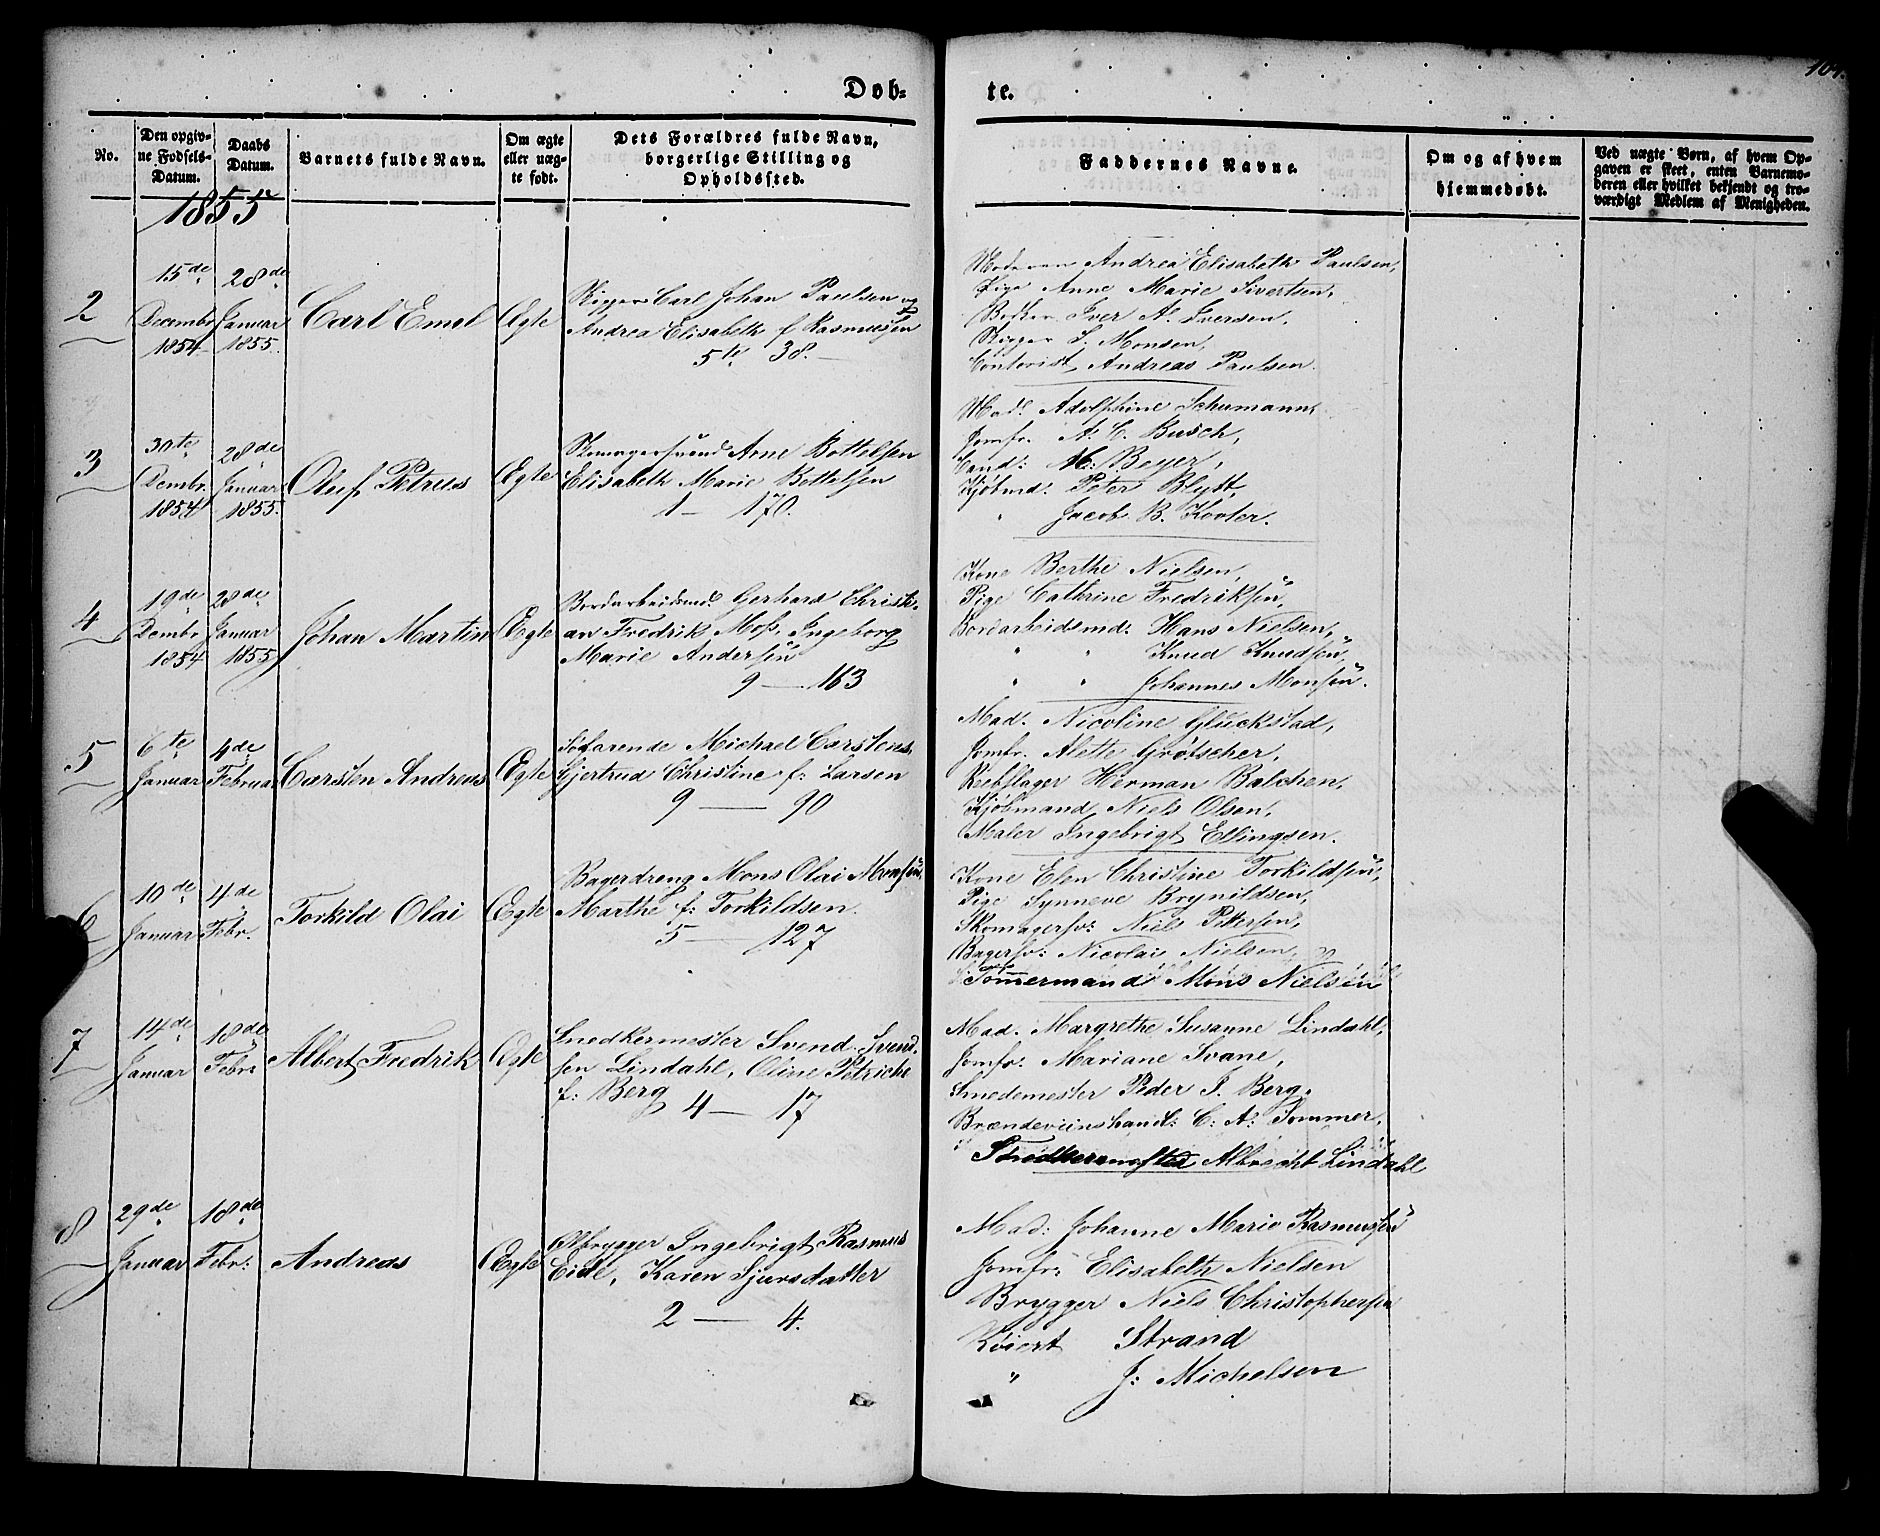 Døb=
te.
164.
No.
Den opgiv-
ne Fødsels-
Datum.
Daabs
Datum.
Barnets fulde Navn.
Om ægte
eller uæg-
te født.
Dets Forældres fulde Navn,
borgerlige Stilling og
Opholdssted.
Faddernes Navne.
Om og af hvem
hjemmedøbt.
Ved uægte Børn, af hvem Op-
gaven er skeet, enten Barnemo-
deren eller hvilket bekjendt og tro-
værdigt Medlem af Menigheden.
1855
2
15de
Decembr
1854
28de
Januar
1855.
Carl Emil
Ægte
Rigger Carl Johan Paulsen og
Andrea Elisabeth f Rasmussen
5te 38.
Moderen Andrea Elisabeth Paulsen,
Pige Anne Marie Sivertsen,
Iver A. Iversen,
Rigger S. Monsen,
Contorist Andreas Paulsen.
3
30te
Dembr.
1854
28de
Januar
1855.
Oluf Petrus
Ægte
Skomagersvend Arne Bottelsen
Elisabeth Marie Bottelsen
1 — 170.
Mad. Adolphine Schumann,
Jomfr. A. C. Busch,
Cand: M: Beyer,
Kjøbmd. Peter Blytt,
" Jacob B. Koster.
4
19de
Dembr
1854
28de
Januar
1855
Johan Martin
Ægte
Bordarbeidsmd. Gerhard Christi-
an Fredrik Moss, Ingeborg
Marie Andersen
9 — 163
Kone Berthe Nielsen,
Pige Cathrine Fredriksen,
Bordarbeidsmd. Hans Nielsen,
" " Knud Knudsen,
" " Johannes Monsen.
5
6te
Januar
4de
Februar
Carsten Andreas
Ægte
Søfarende Michael Carstens,
Gjertrud Christine f: Larsen
9 — 90
Mad. Nicoline Gluckstad,
Jomfr. Alette Grötscher,
Reebslager Herman Balchen,
Kjøbmand Niels Olsen,
Maler Ingebrigt Ellingsen.
6
10de
Januar
4de
Febr.
Torkild Olai
Ægte
Bagerdreng Mons Olai Monsen,
Marthe f: Torkildsen.
5 — 127
Kone Elen Christine Torkildsen,
Pige Synneve Brynildsen,
Skomagersv: Niels Pettersen,
Bagersv: Nicolai Nielsen,
Tømmermand Mons Nielsen
7
14de
Januar
18de
Febr
Albert Fredrik
Ægte
Snedkermester Svend Svend-
sen Lindahl, Oline Petriche
f: Berg
4 — 17
Mad. Margrethe Susanne Lindahl,
Jomfr: Mariane Svane,
Smedemester Peder J. Berg,
Brændeviinshandl: C: A: Sommer,
Snedkermester Albrecht Lindahl
8
29de
Januar
18de
Febr:
Andreas
Ægte
Ølbrygger Ingebrigt Rasmus
Eide, Karen Sjursdatter
2 — 4.
Mad: Johanne Marie Rasmussen
Jomfr: Elisabeth Nielsen
Brygger Niels Christophersen
Strand
" J: Michelsen